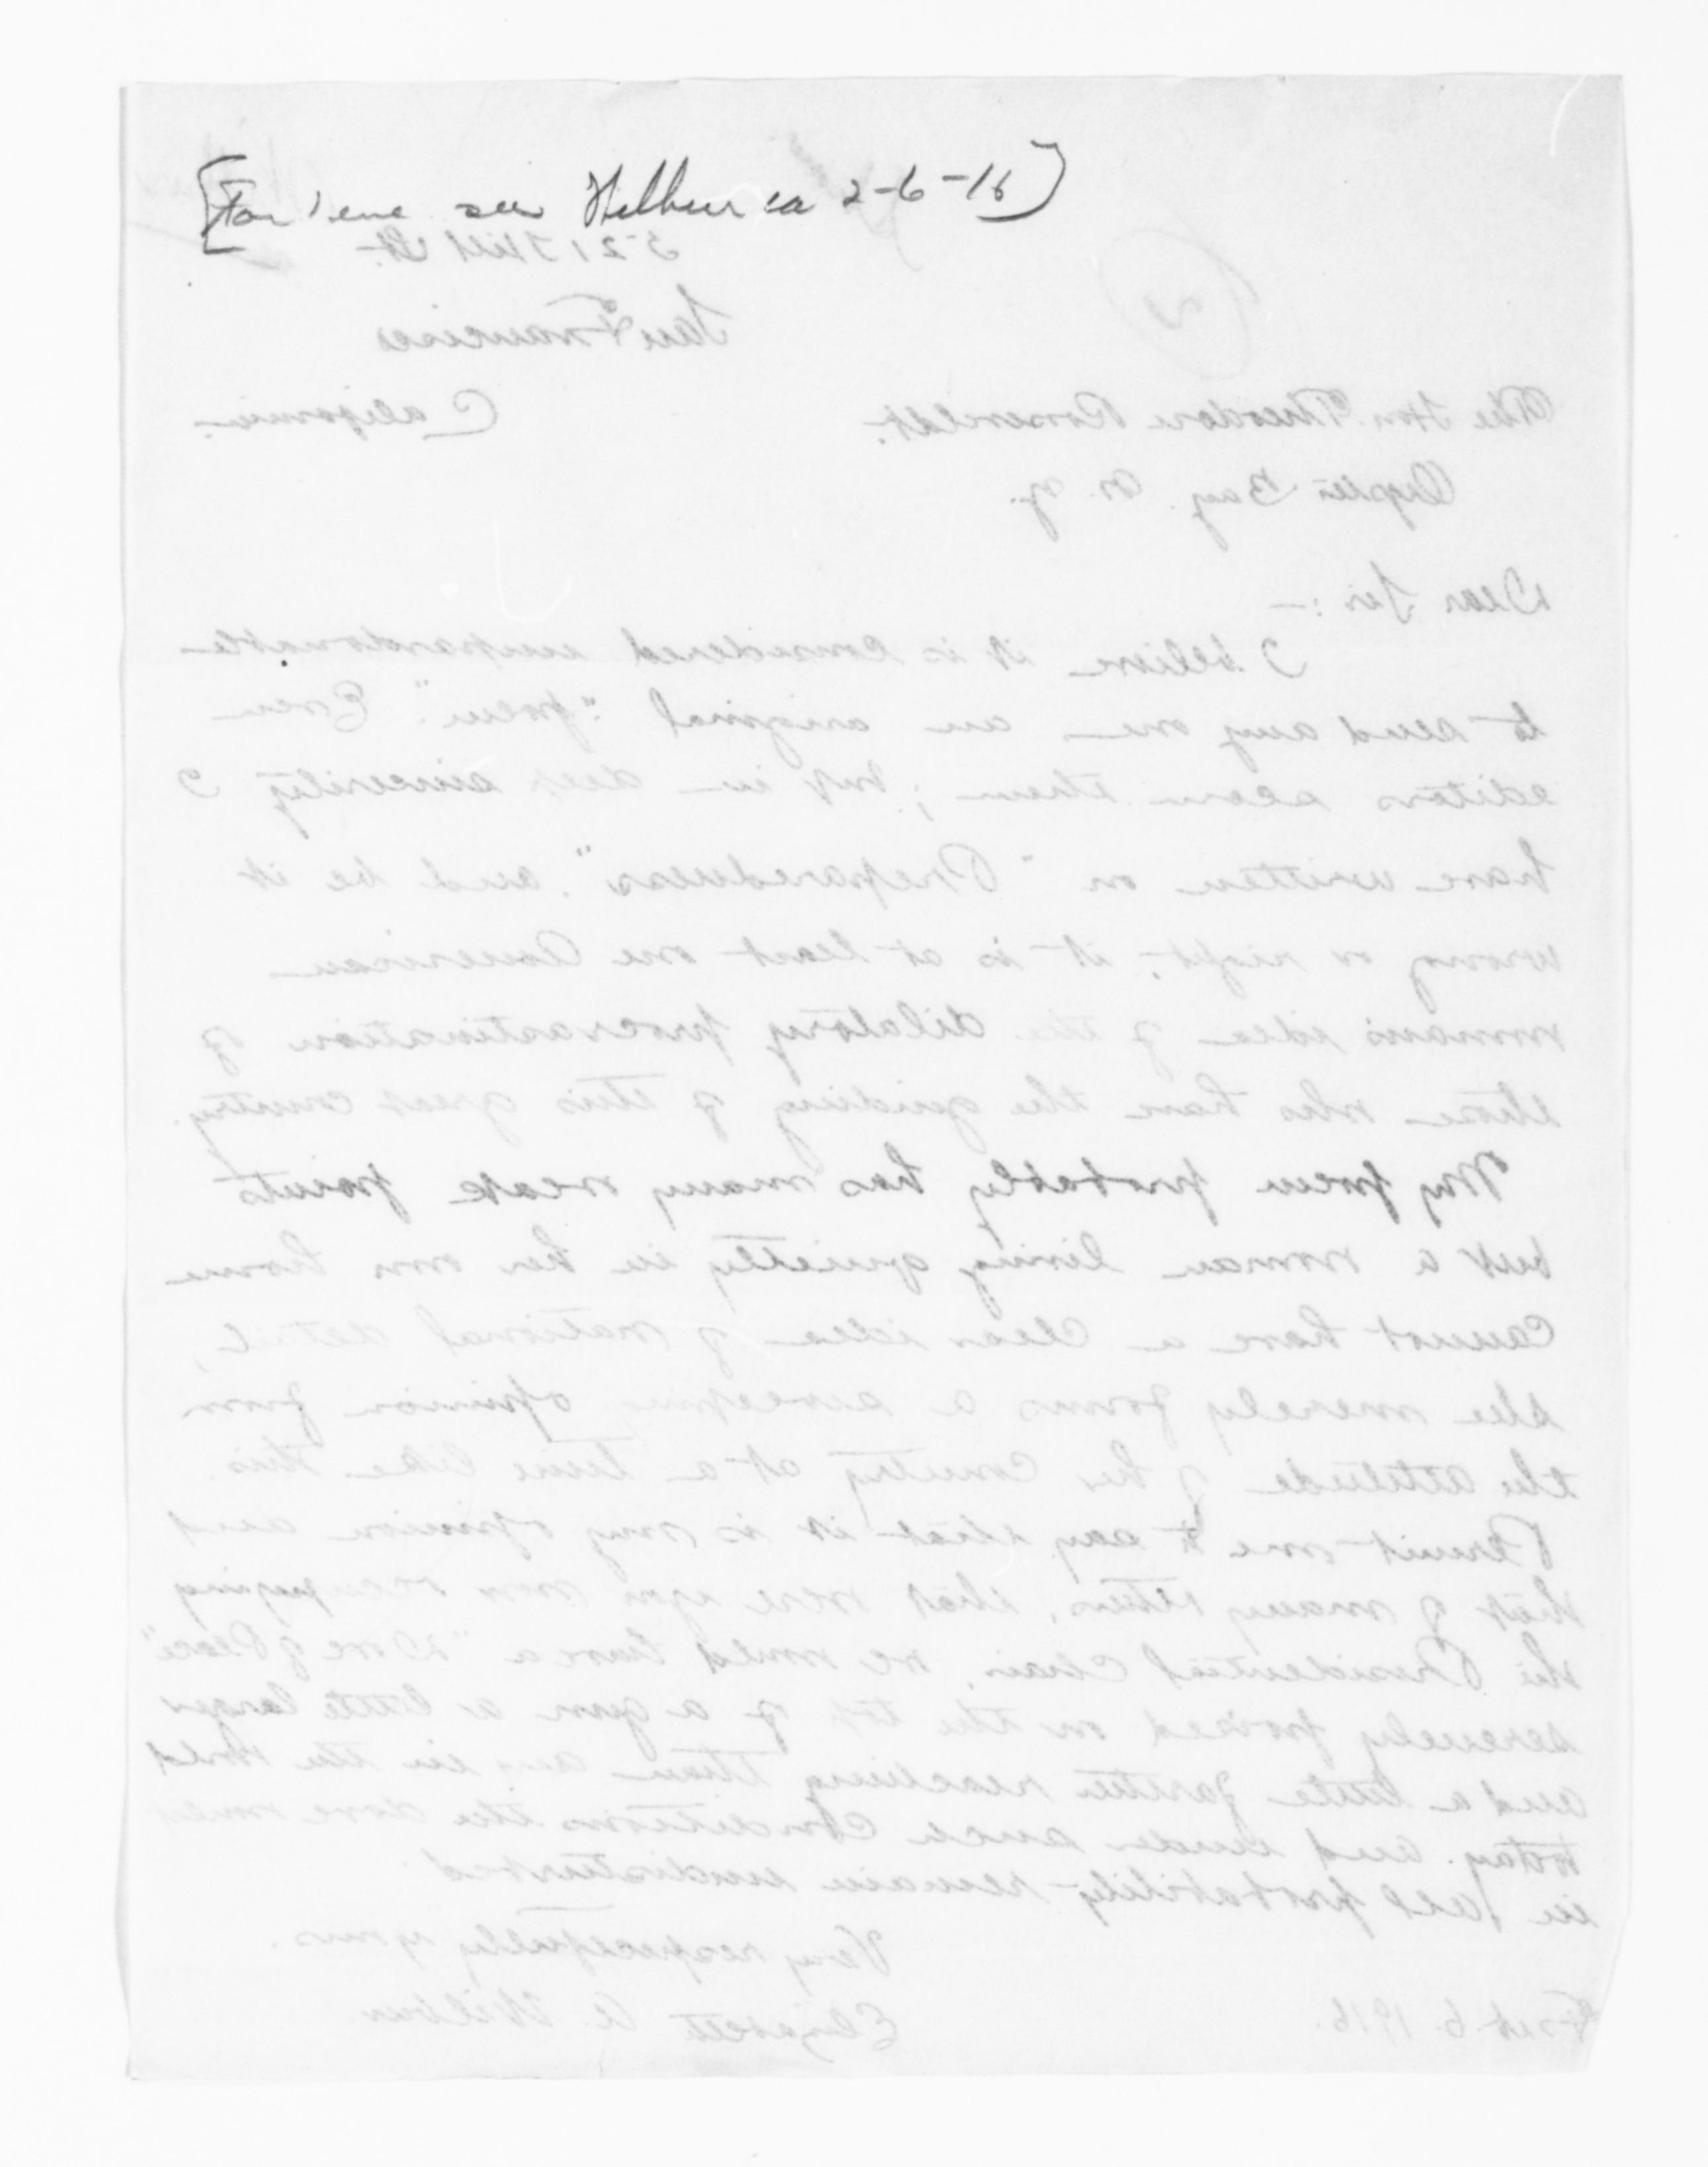 [For 1 enc see Wilbur ca 2-6-16]
521 Hill St.
San Francisco
California.
The Hon. Theodore Roosevelt.
Oyster Bay. N. Y.
Dear Sir: —
I believe it is considered unpardonable
to send any one an original "poem". Even
editors scorn them; but in deep sincerity I
have written on "Preparedness". and be it
wrong or right, it is at least one American
woman's idea of the dilatory procrastination of
those who have the guiding of this great country.
My poem probably has many weak points
but a woman living quietly in her own home
cannot have a clear idea of national detail,
she merely forms a sweeping opinion from
the attitude of her country at a time like this.
Permit me to say that it is my opinion and
that of many others, that were you now occupying
the Presidential Chair, we would have a "Dove of Peace"
serenely poised on the top of a gun a little larger
and a little farther reaching than any in the world
today. and under such conditions the dove would
in all probability remain undisturbed
Very respectfully yours.
Elizabeth A. Wilbur
Feb. 6. 1916.